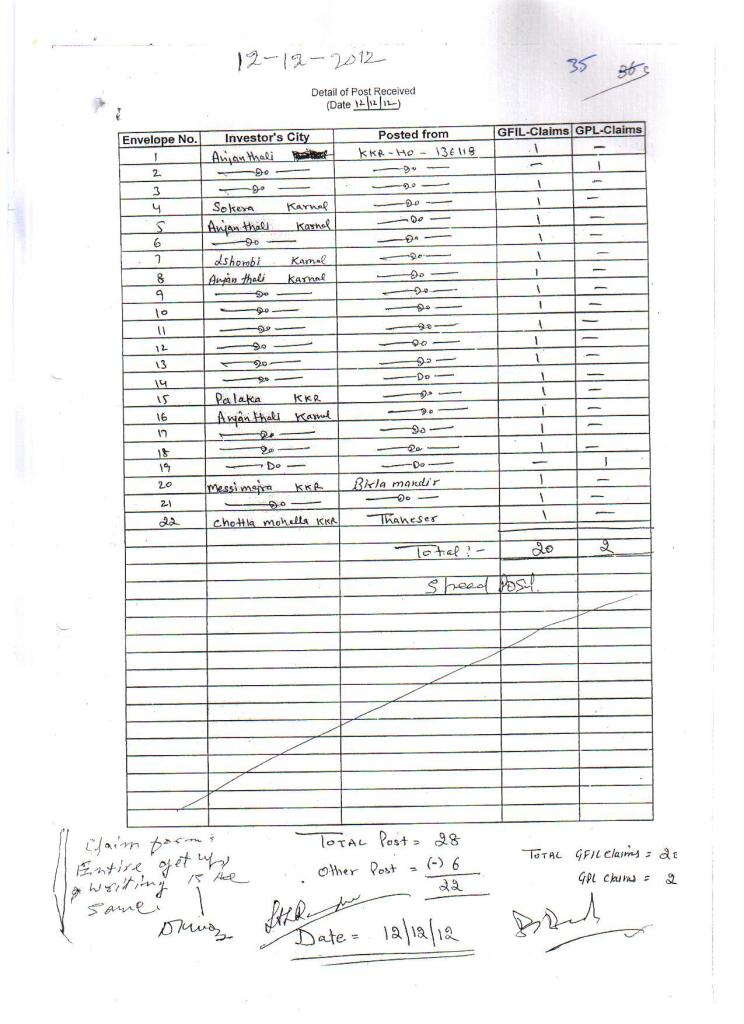 12-12-2012
35
36
Detail of Post Received
(Date 12/12/12)
Envelope No. Investor's City Posted from GFIL-Claims GPL-Claims
1 Anjanthali KKR-HO - 136118 1 —
2 — Do — — Do — — 1
3 — Do — — Do — 1 —
4 Sokera Karnal — Do — 1 —
5 Anjanthali Karnal — Do — 1 —
6 — Do — — Do — 1 —
7 Karnal — Do — 1 —
8 Anjanthali Karnal — Do — 1 —
9 — Do — — Do — 1 —
10 — Do — — Do — 1 —
11 — Do — — Do — 1 —
12 — Do — — Do — 1 —
13 — Do — — Do — 1 —
14 — Do — — Do — 1 —
15 Palaka KKR — Do — 1 —
16 Anjanthali Karnal — Do — 1 —
17 — Do — — Do — 1 —
18 — Do — — Do — 1 —
19 — Do — — Do — — 1
20 Messimajra KKR Birla mandir 1 —
21 — Do — — Do — 1 —
22 Chottla mohella KKR Thaneser 1 —
Total :- 20 2
Speed Post.
Claim forms
Entire get up
& writing is the
same.
TOTAL Post = 28
Other Post = (-) 6
22
Date = 12/12/12
TOTAL GFIL Claims = 20
GPL Claims = 2